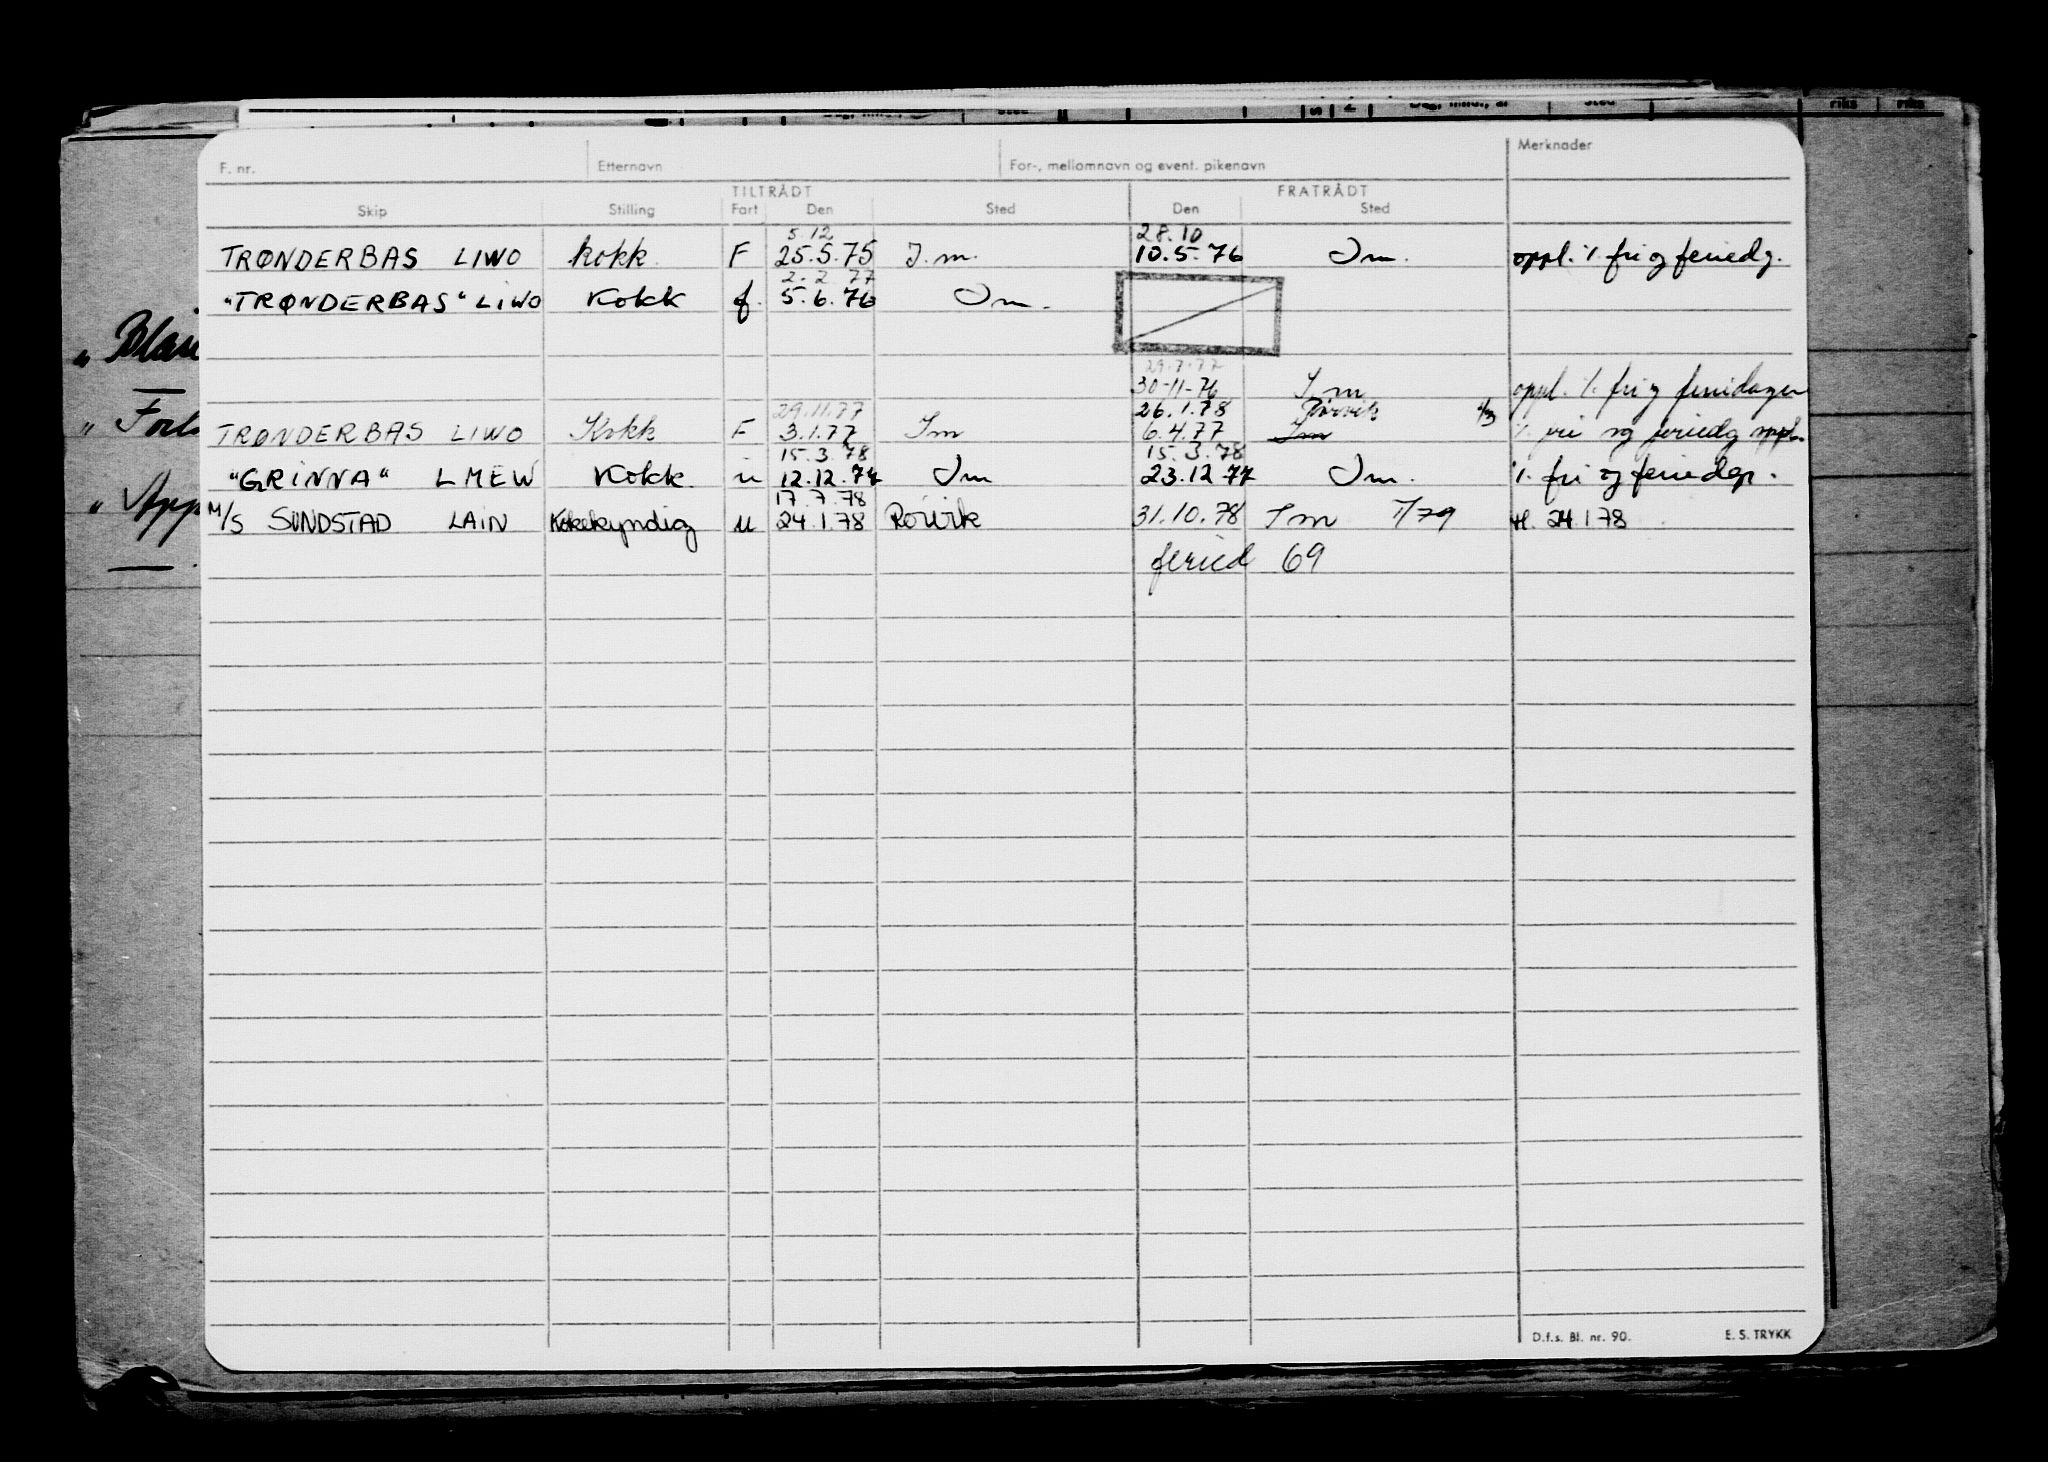 Merknader
F. nr. Etternavn For-, mellomnavn og event. pikenavn
TILTRÅDT FRATRÅDT
Skip Stilling Fart Den Sted Den Sted
5.12 28.10
TRØNDERBAS LIWO Kokk F 25.5.75 Im. 10.5.76 Im. oppl. %. fri og feriedg.
2.2 77
"TRØNDERBAS" LIWO Kokk f. 5.6.76 Im.
29.7.77
30-11-76 Im oppl. %. fri og feriedager
29.11.77 26.1.78 Rørvik
TRØNDERBAS LIWO Kokk F 3.1.77 Im 6.4.77 Im %. fri og feriedg oppl.
15.3.78 15.3.78
"GRINNA" LMEW Kokk u 12.12.77 Im 23.12 77 Im. %. fri og feriedgr.
17.7.78
M/S SUNDSTAD LAIN Kokekyndig u 24.1.78 Rørvik 31.10.78 Im 1/79 24.1 78
feried 69
D.f.s. Bl. nr. 90. E. S. TRYKK